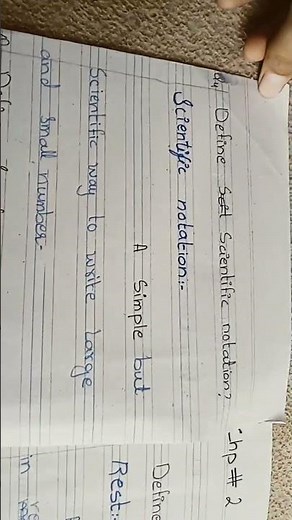 Define Scientific notation?
Scientific notation:-
A Simple but
Scientific way to write Large
and small number:-
hp # 2
Define
Rest:-
in